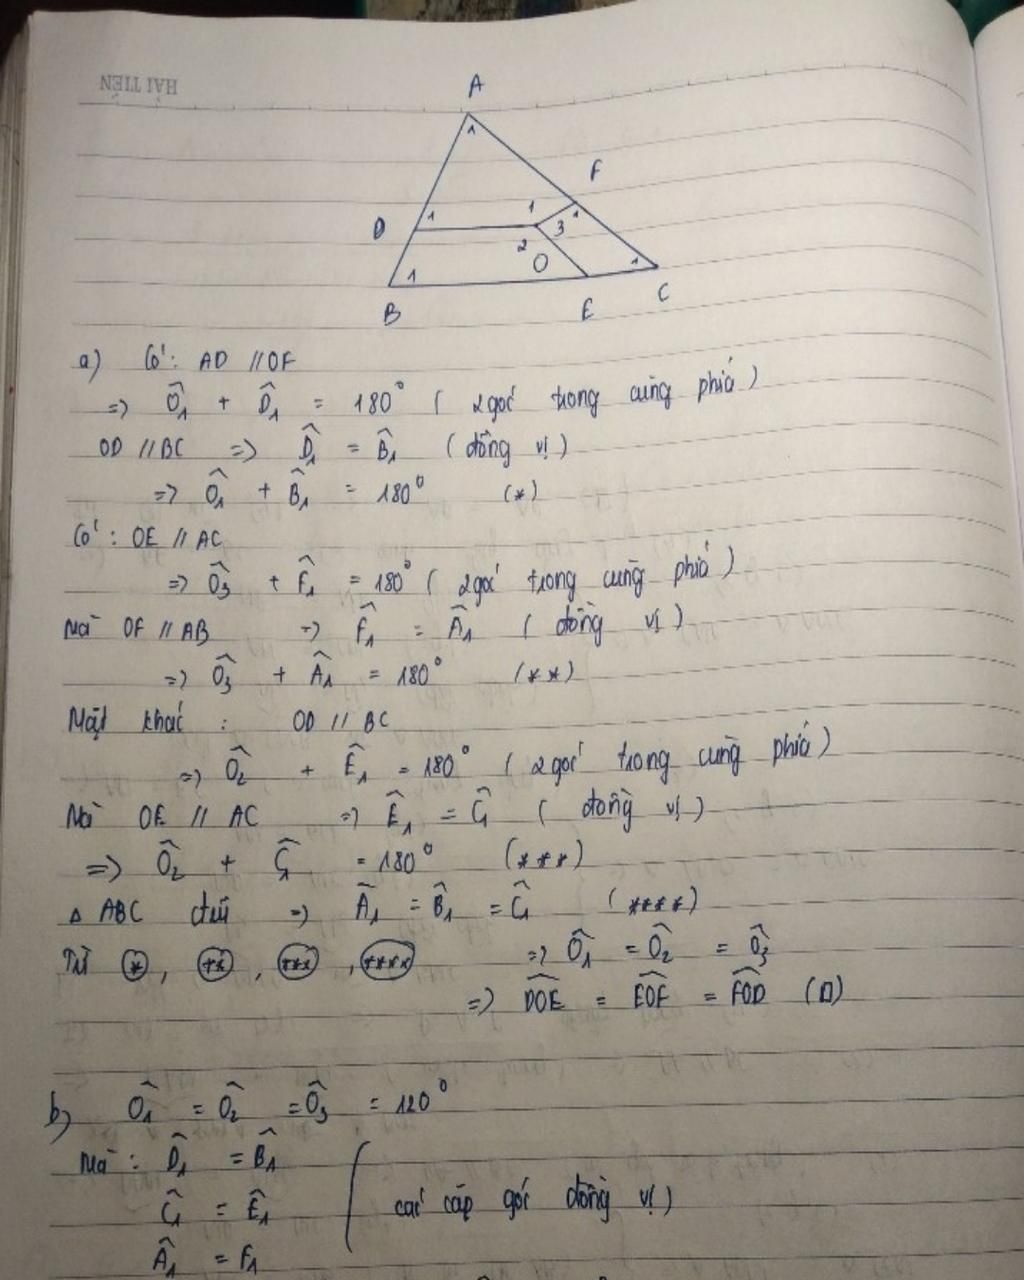 HẢI TIẾN
A
1
F
D 1 1 3 1
2
O
1 1
B E C
a) Có: AD // OF
=> Ô₁ + D̂₁ = 180° ( 2 góc trong cùng phía )
OD // BC => D̂₁ = B̂₁ ( đồng vị )
=> Ô₁ + B̂₁ = 180° (*)
Có: OE // AC
=> Ô₃ + F̂₁ = 180° ( 2 góc trong cùng phía )
Mà OF // AB => F̂₁ = Â₁ ( đồng vị )
=> Ô₃ + Â₁ = 180° (**)
Mặt khác : OD // BC
=> Ô₂ + Ê₁ = 180° ( 2 góc trong cùng phía )
Mà OE // AC => Ê₁ = Ĉ₁ ( đồng vị )
=> Ô₂ + Ĉ₁ = 180° (***)
Δ ABC đều => Â₁ = B̂₁ = Ĉ₁ (****)
Từ (*), (**), (***), (****) => Ô₁ = Ô₂ = Ô₃
=> D̂OE = ÊOF = F̂OD (□)
b) Ô₁ = Ô₂ = Ô₃ = 120°
Mà : D̂₁ = B̂₁
Ĉ₁ = Ê₁ ( các cặp góc đồng vị )
Â₁ = F₁